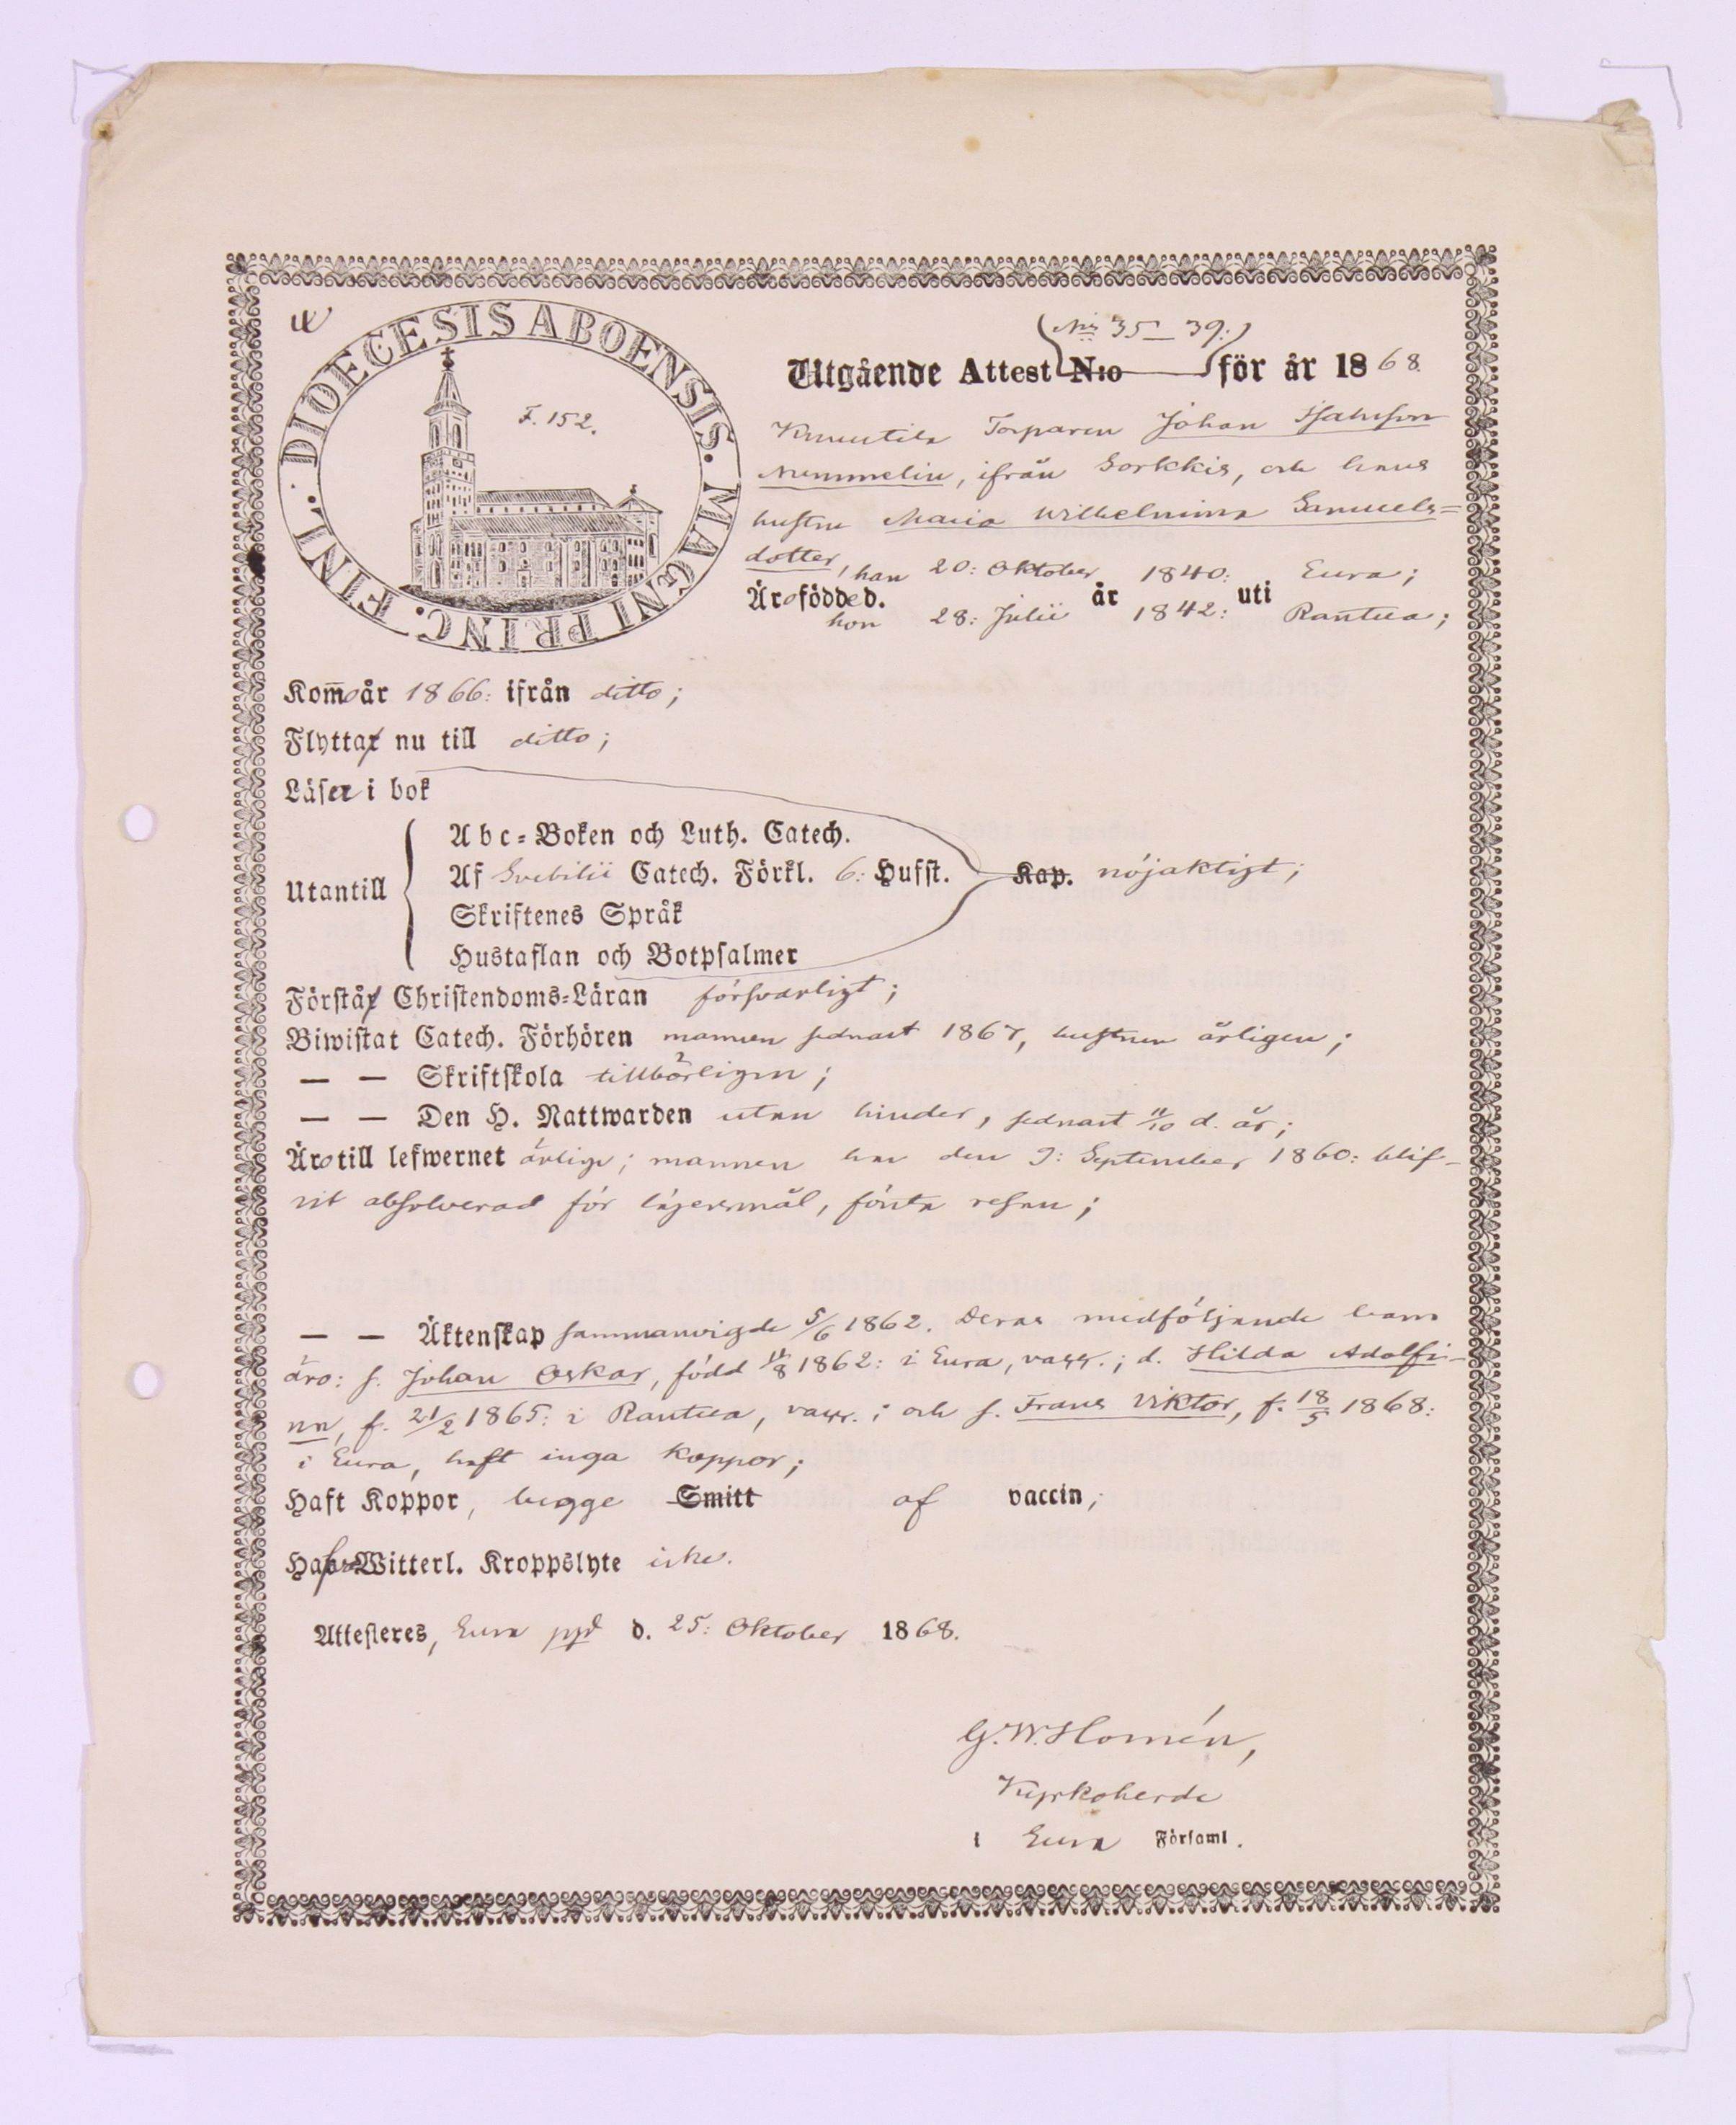 DIOECESIS ABOENSIS. MAGNI PRINC. FINL.
F. 152.
(N:is 35–39.)
Utgående Attest N:o för år 1868.
Knuutila Torparen Johan Isaksson
Nummelin, ifrån Sorkkis, och hans
hustru Maria Wilhelmina Samuels=
dotter, han 20: Oktober 1840: Eura;
Äro födde d. år uti
hon 28: Julii 1842: Rantua;
Kommo år 1866: ifrån ditto;
Flytta nu till ditto;
Läsa i bok
Abc=Boken och Luth. Catech.
Utantill Af Svebilii Catech. Förkl. 6: Hufst. Kap. nöjaktigt;
Skriftenes Språk
Hustaflan och Botpsalmer
Förstå Christendoms=Läran försvarligt;
Biwistat Catech. Förhören mannen sednast 1867, hustrun årligen;
— — Skriftskola tillbörligen;
— — Den H. Nattwarden utan hinder, sednast 11/10 d. år;
Äro till lefwernet ärliga; mannen har den 9: September 1860: blif-
vit absolverad för lägersmål, första resan;
— — Äktenskap sammanvigde 5/6 1862. Deras medföljande barn
äro: s. Johan Oskar, född 11/8 1862: i Eura, vacc.; d. Hilda Adolfi-
na, f. 21/2 1865: i Rantua, vacc.; och s. Frans Viktor, f. 18/5 1868:
i Eura, haft inga koppor;
Haft Koppor, begge Smitt af vaccin;
Hafva Witterl. Kroppslyte icke.
Attesteres, Eura pgd d. 25: Oktober 1868.
G. W. Homén,
Kyrkoherde
i Eura Församl.